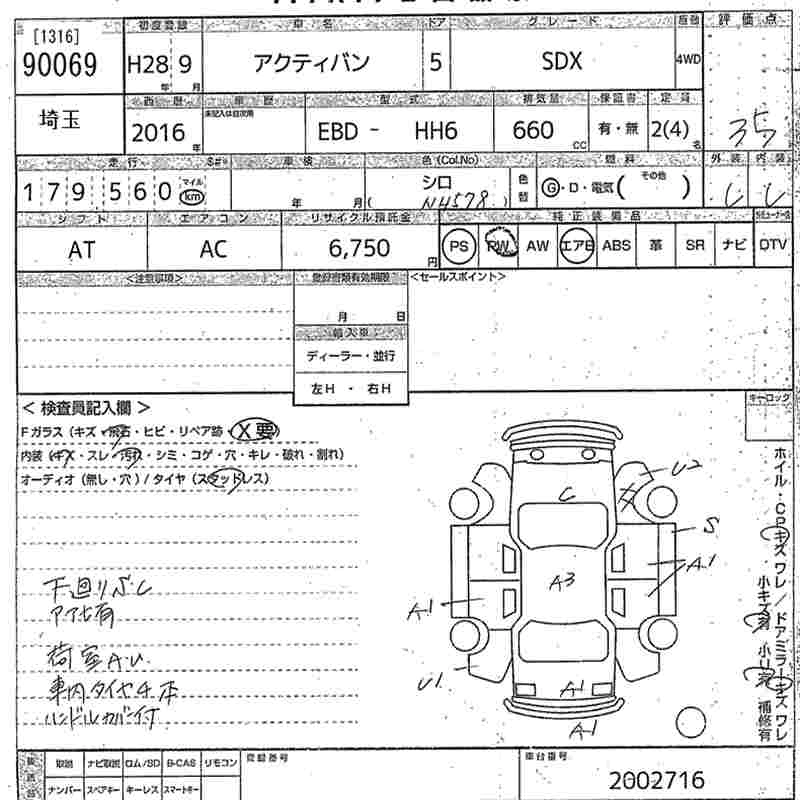 初度登録 車名 ドア グレード 評価点
[1316]
90069 H28 9 アクティバン 5 SDX 4WD
年 月
埼玉
西暦 車歴 型式 排気量 保証書 定員
未記入は自家用
2016 EBD - HH6 660 有・無 2(4) 35
年 CC 名
走行 車検 色(Col.No) 燃料 外装 内装
179560 マイル km 年 月 ( シロ N4578 ) 色替 G・D・電気( その他 ) C C
シフト エアコン リサイクル預託金 純正装備品
AT AC 6,750 円 PS PW AW エアB ABS 革 SR ナビ DTV
<注意事項> 登録書類有効期限 <セールスポイント>
月 日
輸入車
ディーラー・並行
左H ・ 右H
< 検査員記入欄 > キーロック
Fガラス (キズ・飛石・ヒビ・リペア跡・X要)
内装 (キズ・スレ・汚れ・シミ・コゲ・穴・キレ・破れ・割れ)
オーディオ (無し・穴) / タイヤ (スタッドレス)
U2
C
S
A1
A3
A1
U1
A1
A1
ホイル・CPキズ ワレ / ドアミラーキズ ワレ
小キズ有 小U有 補修有
下廻りサビ
アマセ有
荷室AU
車内タイヤ4本
ハンドルカバー付
取説 ナビ取説 ロム/SD B-CAS リモコン 登録番号 車台番号
ナンバー スペアキー キーレス スマートキー 2002716